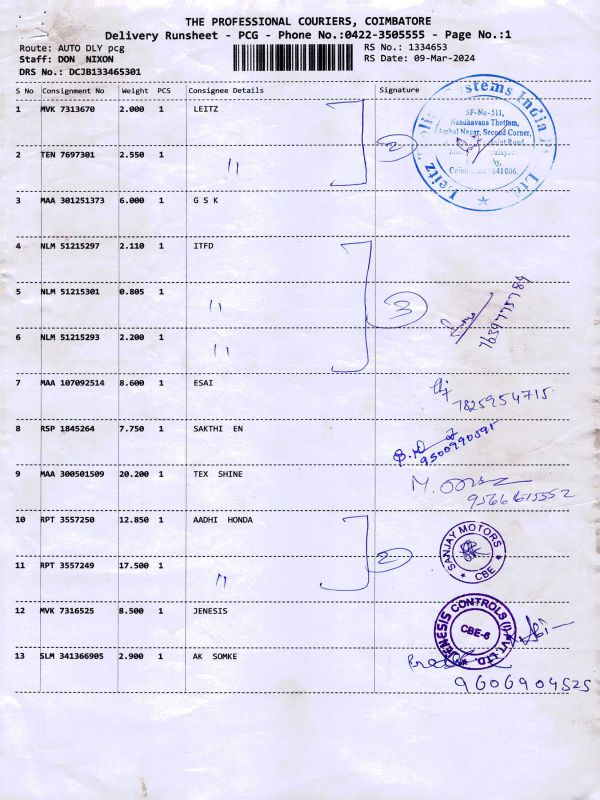 THE PROFESSIONAL COURIERS, COIMBATORE
Delivery Runsheet - PCG - Phone No.:0422-3505555 - Page No.:1
Route: AUTO DLY pcg RS No.: 1334653
Staff: DON NIXON RS Date: 09-Mar-2024
DRS No.: DCJB133465301
S No Consignment No Weight PCS Consignee Details Signature
1 MVK 7313670 2.000 1 LEITZ
2 TEN 7697301 2.550 1 〃 2
Leitz Systems India Pvt Ltd
SF-No-511,
Nandhavana Thottam,
Ambal Nagar, Second Corner,
641006.
3 MAA 301251373 6.000 1 G S K
4 NLM 51215297 2.110 1 ITFD
5 NLM 51215301 0.805 1 〃 3
7639775789
6 NLM 51215293 2.200 1 〃
7 MAA 107092514 8.600 1 ESAI
7825954715
8 RSP 1845264 7.750 1 SAKTHI EN
9500990591
9 MAA 300501509 20.200 1 TEX SHINE
9566615552
10 RPT 3557250 12.850 1 AADHI HONDA
11 RPT 3557249 17.500 1 〃 2
SANJAY MOTORS
CBE
12 MVK 7316525 8.500 1 JENESIS
JENESIS CONTROLS (I) PVT. LTD.
CBE-6
13 SLM 341366905 2.900 1 AK SOMKE
9606904525